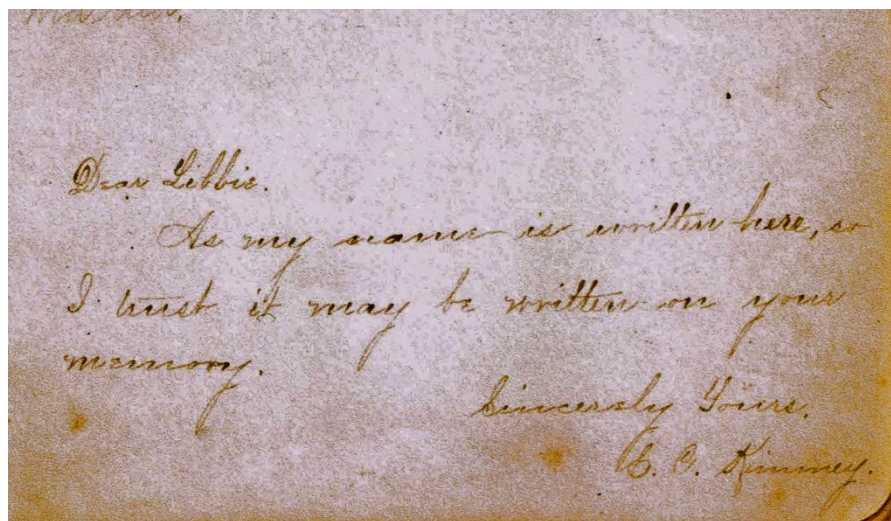 Dear Libbie.
As my name is written here, so
I trust it may be written on your
memory.
Sincerely Yours,
Kinney.